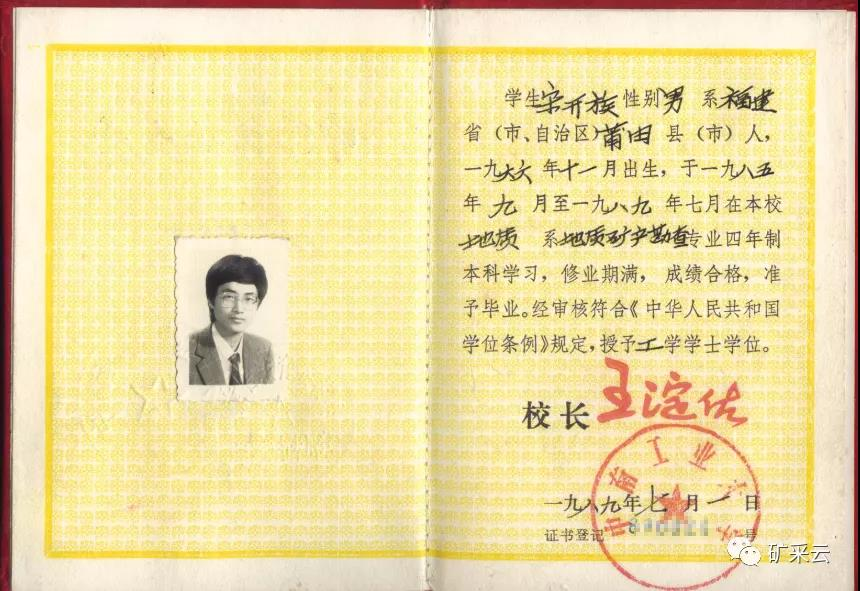 学生宋开族性别男系福建
省（市、自治区）莆田县（市）人，
一九六六年十一月出生，于一九八五
年九月至一九八九年七月在本校
地质系地质矿产勘查专业四年制
本科学习，修业期满，成绩合格，准
予毕业。经审核符合《中华人民共和国
学位条例》规定，授予工学学士学位。
校长王淀佐
中南工业大学
一九八九年七月一日
证书登记 号
矿采云